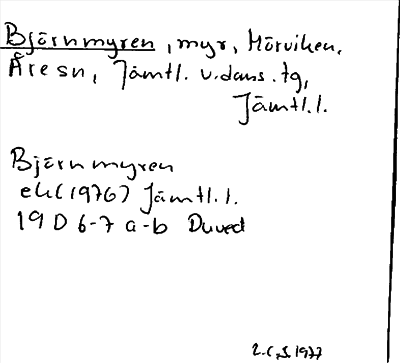 Björnmyren, myr, Mörviken,
Åre sn, Jämtl. v. doms. tg,
Jämtl. l.
Björnmyren
ek (1976) Jämtl. l.
19 D 6-7 a-b Duved
1977